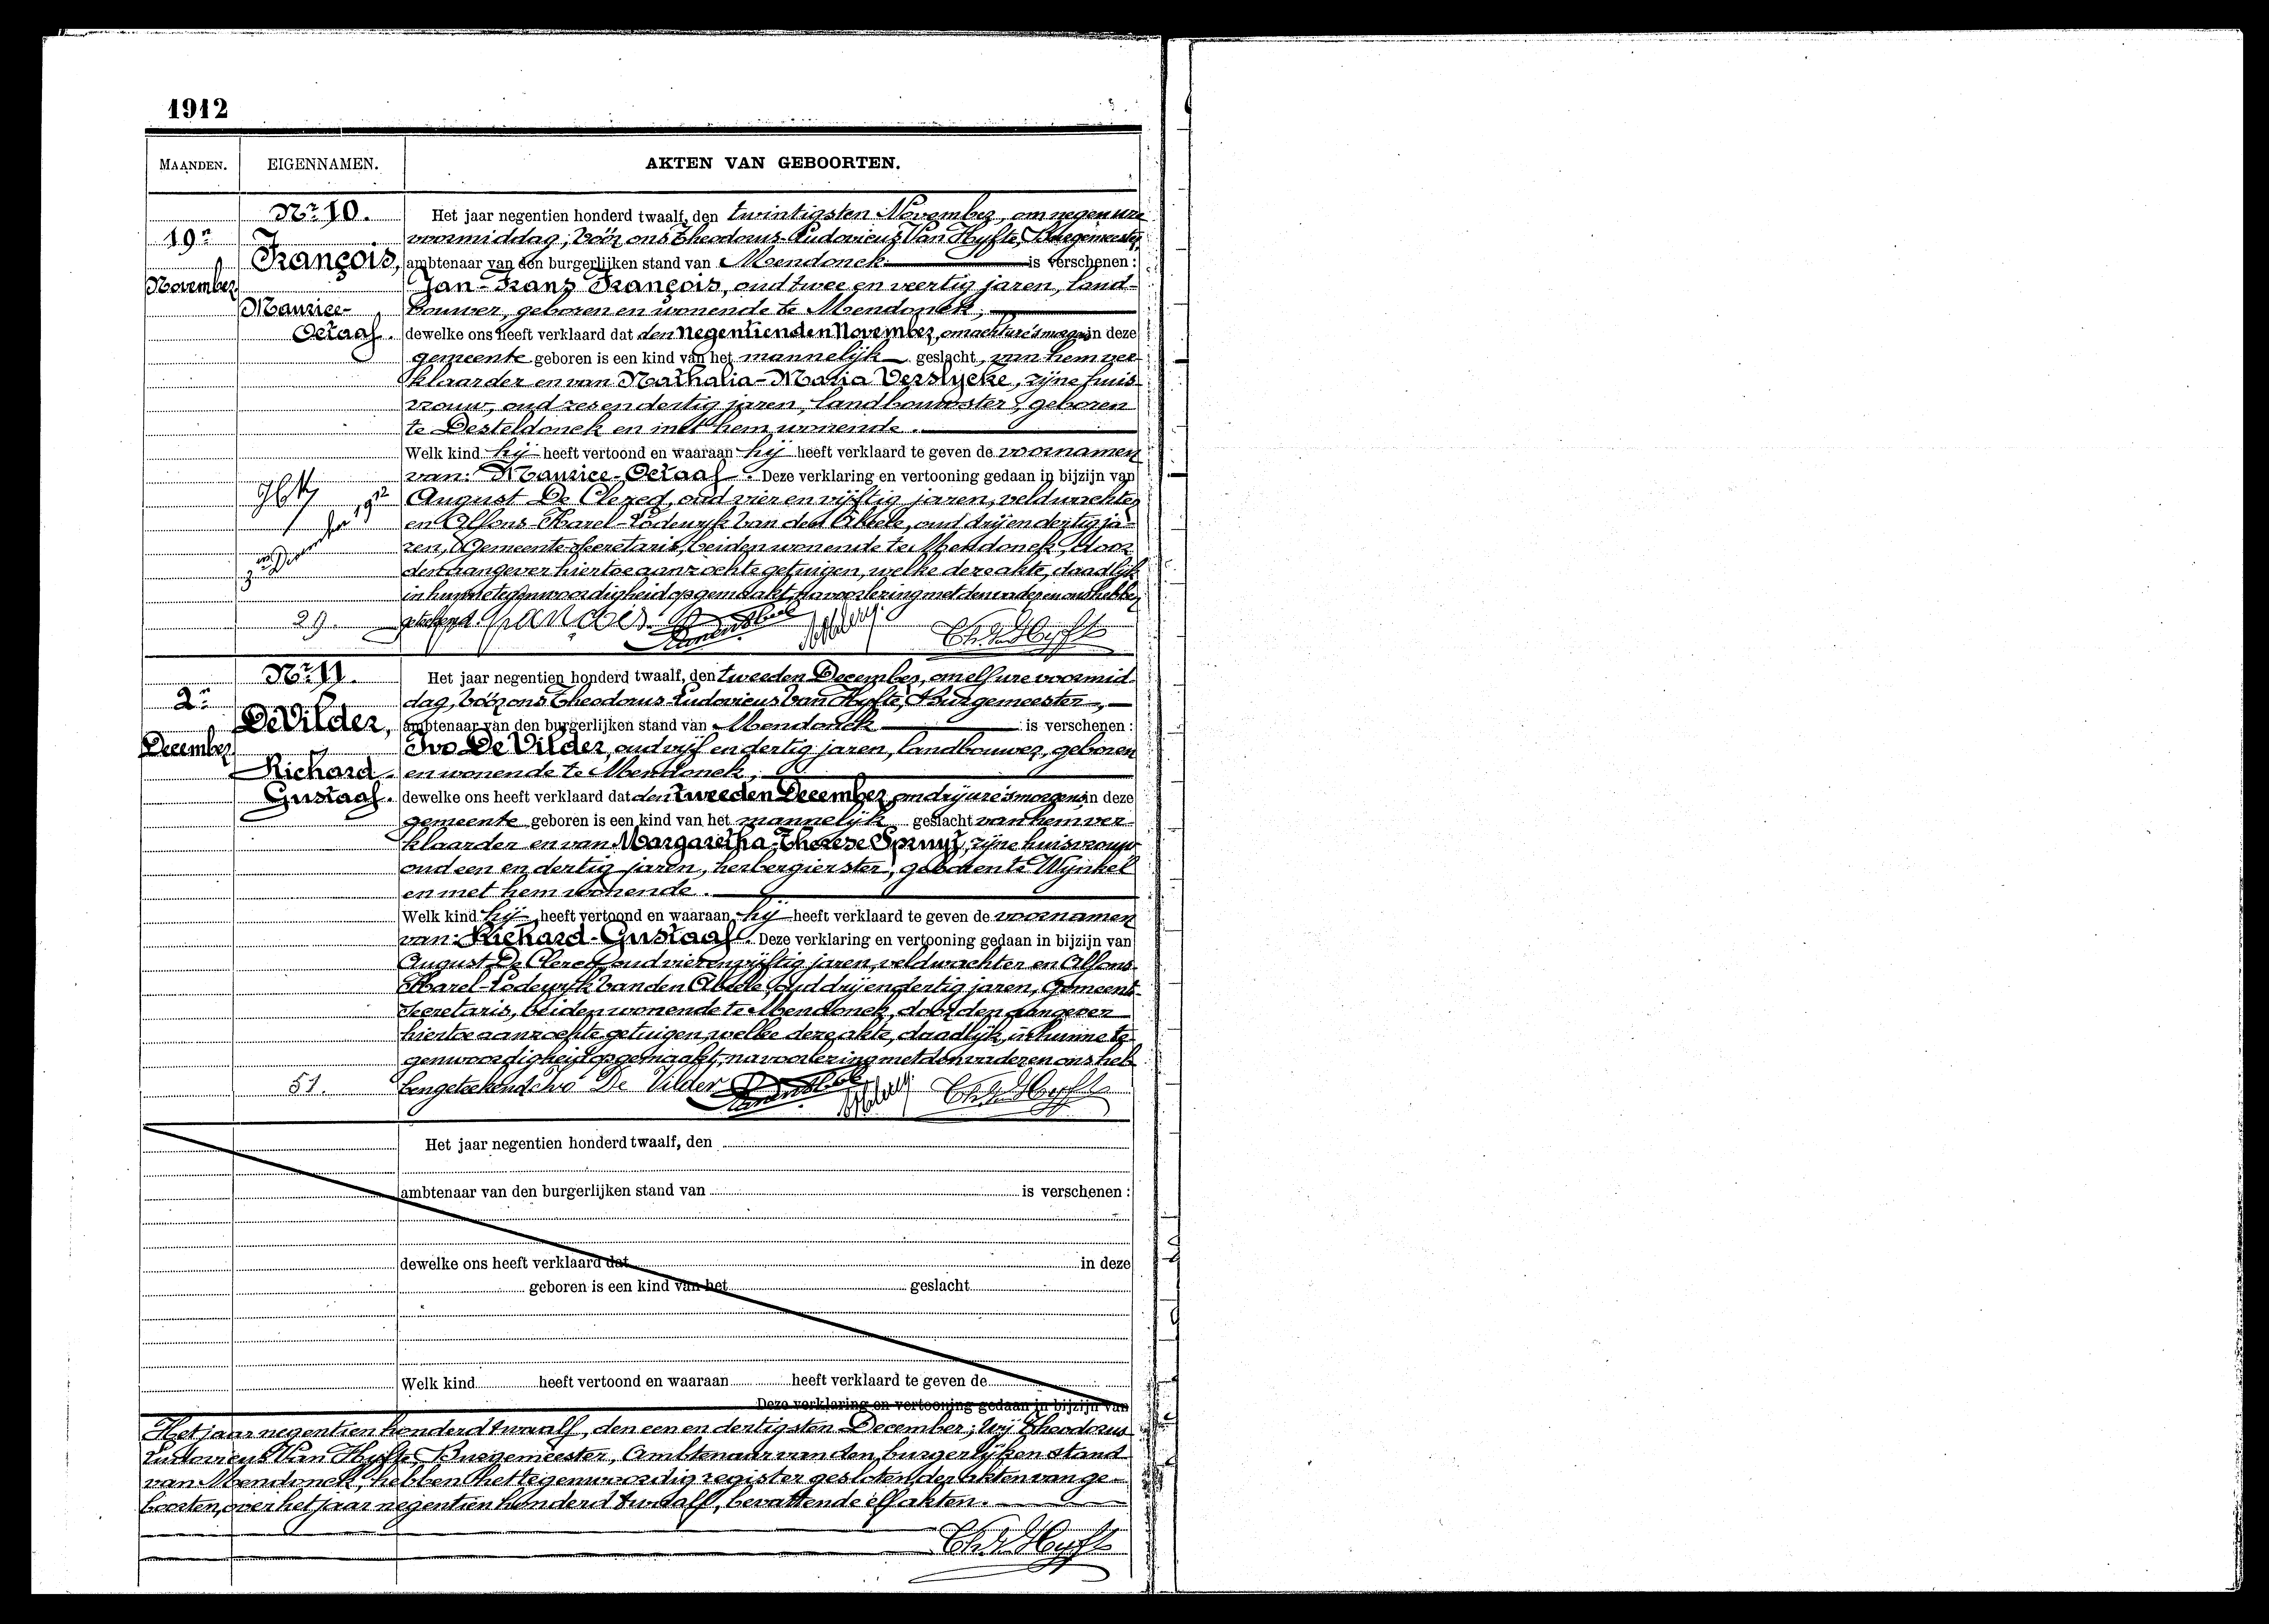 1912
MAANDEN.
EIGENNAMEN.
AKTEN VAN GEBOORTEN.
Nr. 10.
19n
November
François,
Maurice-
Octaaf.
29.
Het jaar negentien honderd twaalf, den twintigsten November, om negen ure
voormiddag; vóór ons Theodorus-Ludovicus Van Hyfte, Burgemeester,
ambtenaar van den burgerlijken stand van Mendonck is verschenen:
Jan-Frans François, oud twee en veertig jaren, land-
bouwer, geboren en wonende te Mendonck;
dewelke ons heeft verklaard dat den negentienden November, om acht ure 's morgens in deze
gemeente geboren is een kind van het mannelijk geslacht, van hem ver-
klaarder en van Nathalia-Maria Verslycke, zijne huis-
vrouw, oud zes en dertig jaren, landbouwster, geboren
te Desteldonck en met hem wonende.
Welk kind hij heeft vertoond en waaraan hij heeft verklaard te geven de voornamen
van: Maurice-Octaaf. Deze verklaring en vertooning gedaan in bijzijn van
August De Clercq, oud vier en vijftig jaren, veldwachter
en Alfons-Karel-Lodewyk Van den Abeele, oud drij en dertig ja-
ren, Gemeente-Secretaris, beiden wonende te Mendonck, door
den aangever hiertoe aanzochte getuigen, welke deze akte, daadlijk
in hunne tegenwoordigheid opgemaakt, na voorlezing met den vader en ons hebben
geteekend. François
Nr. 11.
2n
December
De Vilder,
Richard-
Gustaaf.
51.
Het jaar negentien honderd twaalf, den tweeden December, om elf ure voormid-
dag, vóór ons Theodorus-Ludovicus Van Hyfte, Burgemeester,
ambtenaar van den burgerlijken stand van Mendonck is verschenen:
Ivo De Vilder, oud vijf en dertig jaren, landbouwer, geboren
en wonende te Mendonck;
dewelke ons heeft verklaard dat den tweeden December, om drij ure 's morgens in deze
gemeente geboren is een kind van het mannelijk geslacht van hem ver-
klaarder en van Margaretha-Therese Spruyt, zijne huisvrouw
oud een en dertig jaren, herbergierster, geboren te Wijnkel
en met hem wonende.
Welk kind hij heeft vertoond en waaraan hij heeft verklaard te geven de voornamen
van: Richard-Gustaaf. Deze verklaring en vertooning gedaan in bijzijn van
August De Clercq, oud vier en vijftig jaren, veldwachter en Alfons-
Karel-Lodewyk Van den Abeele, oud drij en dertig jaren, Gemeente-
Secretaris, beiden wonende te Mendonck, door den aangever
hiertoe aanzochte getuigen, welke deze akte, daadlijk, in hunne te-
genwoordigheid opgemaakt, na voorlezing met den vader en ons heb-
ben geteekend. Ivo De Vilder
Het jaar negentien honderd twaalf, den
ambtenaar van den burgerlijken stand van is verschenen:
dewelke ons heeft verklaard dat in deze
geboren is een kind van het geslacht
Welk kind heeft vertoond en waaraan heeft verklaard te geven de
Deze verklaring en vertooning gedaan in bijzijn van
Het jaar negentien honderd twaalf, den een en dertigsten December; Wij Theodorus-
Ludovicus Van Hyfte, Burgemeester, Ambtenaar van den burgerlijken stand
van Mendonck, hebben het tegenwoordig register gesloten, der akten van ge-
boorten, over het jaar negentien honderd twaalf, bevattende elf akten.